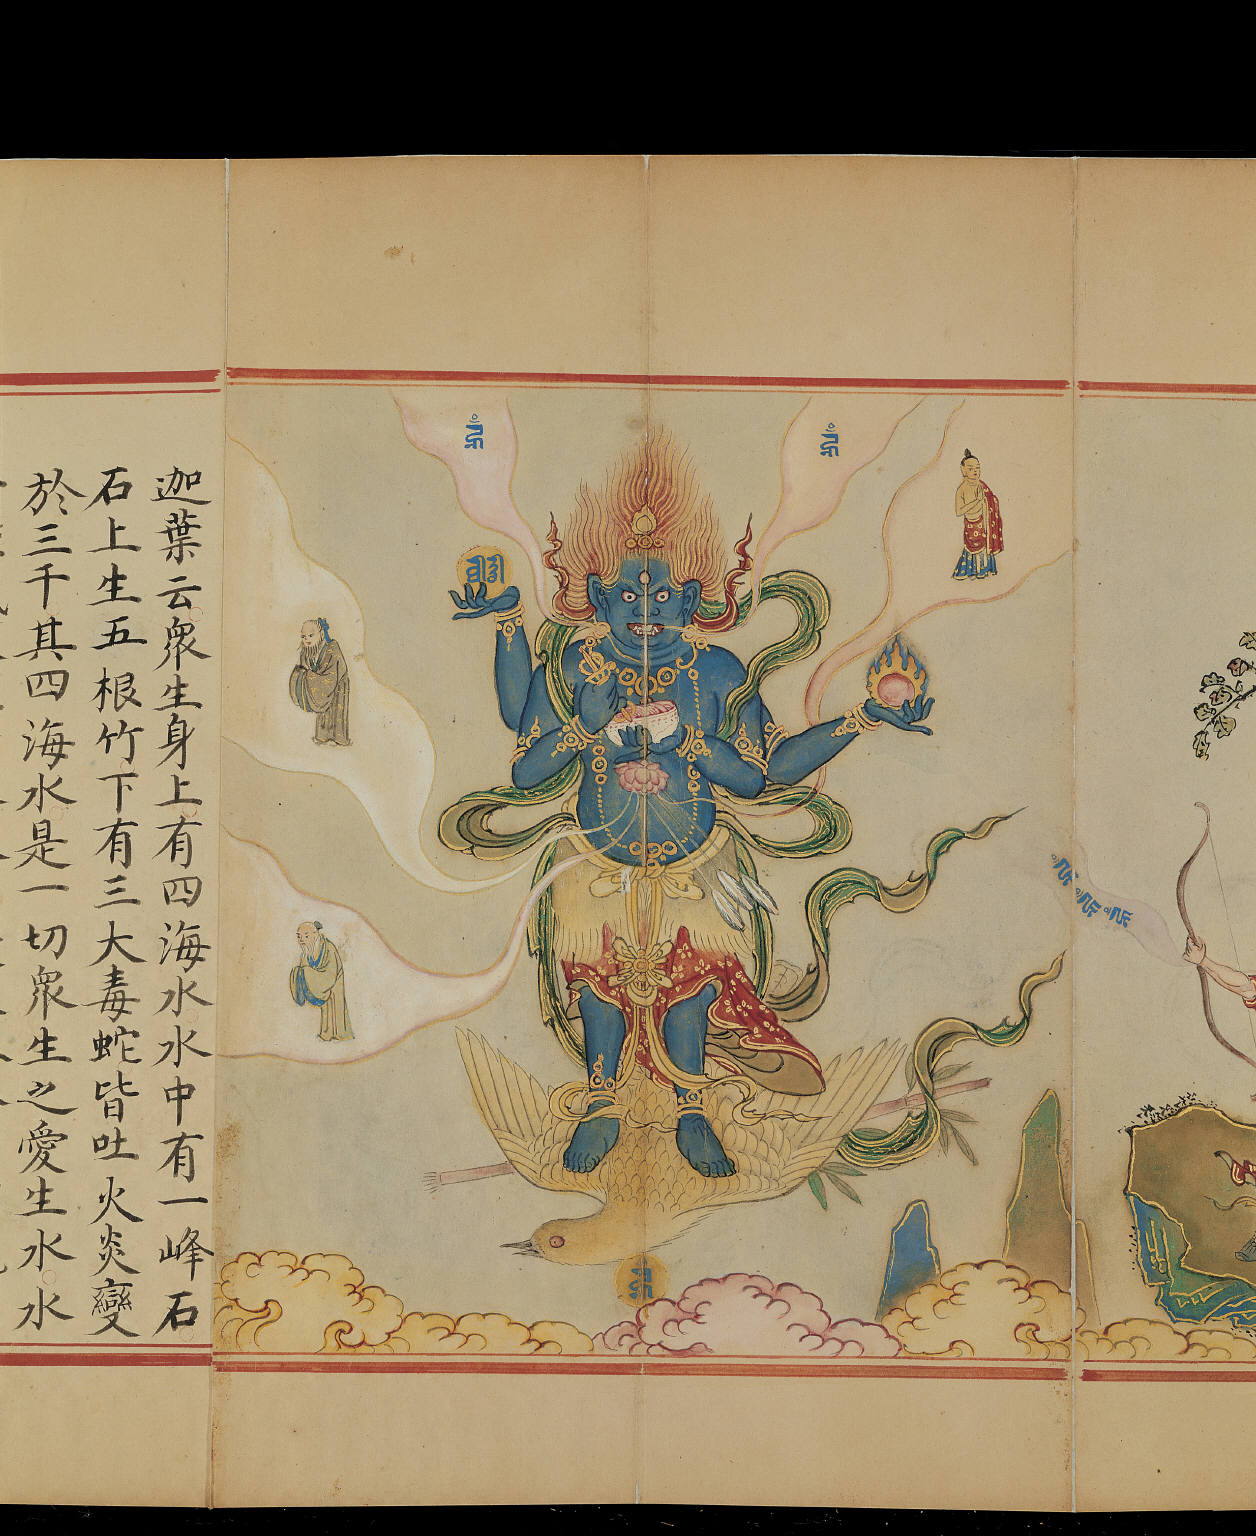 迦葉云眾生身上有四海水水中有一峰石
石上生五根竹下有三大毒蛇皆吐火炎變
於三千其四海水是一切眾生之愛生水水